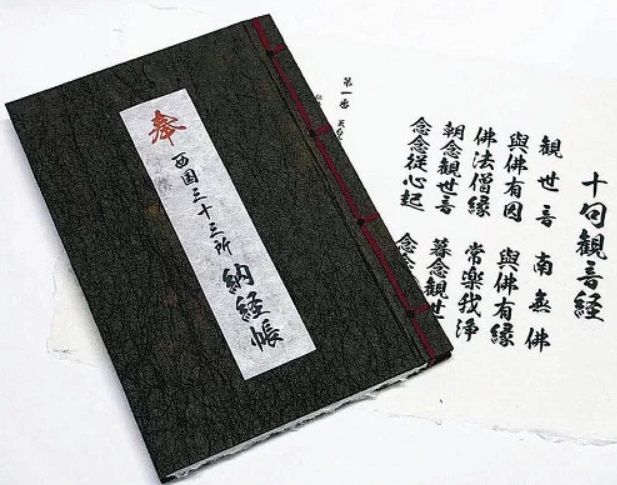 奉
西国三十三所 納経帳
十句観音経
観世音 南無佛
與佛有因 與佛有縁
佛法僧縁 常楽我浄
朝念観世音 暮念観世
念念従心起 念念
第一番 天台